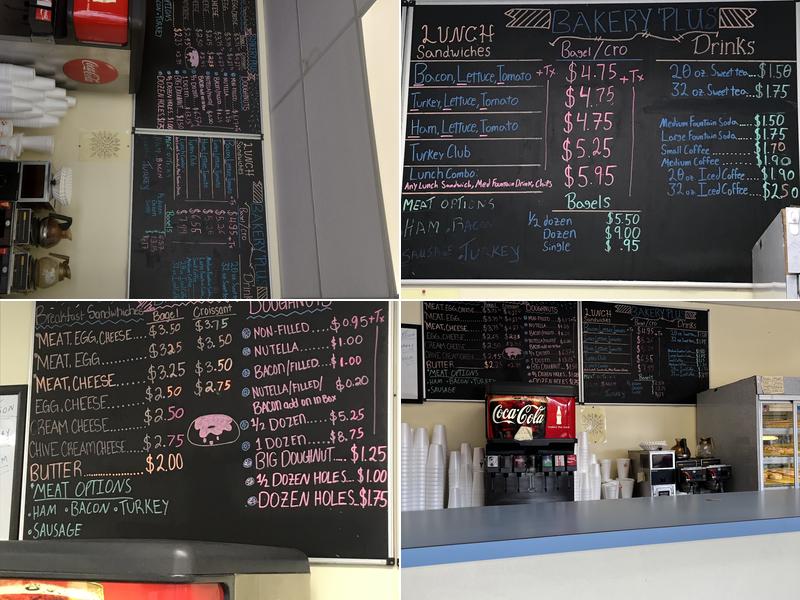 Coca-Cola
BAKERY PLUS
LUNCH
Sandwiches
Bagel/Cro
Drinks
Bacon, Lettuce, Tomato +Tx $4.75 +Tx
Turkey, Lettuce, Tomato $4.75
Ham, Lettuce, Tomato $4.75
Turkey Club $5.25
Lunch Combo: $5.95
Any Lunch Sandwich, Med Fountain Drink, Chips
20 oz. Sweet tea... $1.50
32 oz. Sweet tea... $1.75
Medium Fountain Soda... $1.50
Large Fountain Soda... $1.75
Small Coffee $1.70
Medium Coffee $1.90
20 oz Iced Coffee $1.90
32 oz Iced Coffee... $2.50
MEAT OPTIONS
HAM . BACON
SAUSAGE . TURKEY
Bagels
1/2 dozen $5.50
Dozen $9.00
Single $ .95
Breakfast Sandwiches Bagel Croissant
MEAT, EGG, CHEESE... $3.50 $3.75
MEAT, EGG... $3.25 $3.50
MEAT, CHEESE... $3.25 $3.50
EGG, CHEESE... $2.50 $2.75
CREAM CHEESE... $2.50
CHIVE CREAM CHEESE... $2.75
BUTTER... $2.00
*MEAT OPTIONS
•HAM •BACON •TURKEY
•SAUSAGE
DOUGHNUTS
NON-FILLED.... $0.95+Tx
NUTELLA.... $1.00
BACON/FILLED... $1.00
NUTELLA/FILLED/ $0.20
BACON add on in Box
1/2 DOZEN.... $5.25
1 DOZEN.... $8.75
BIG DOUGHNUT.... $1.25
1/2 DOZEN HOLES.. $1.00
DOZEN HOLES... $1.75
BAKERY PLUS
LUNCH
Drinks
Coca-Cola